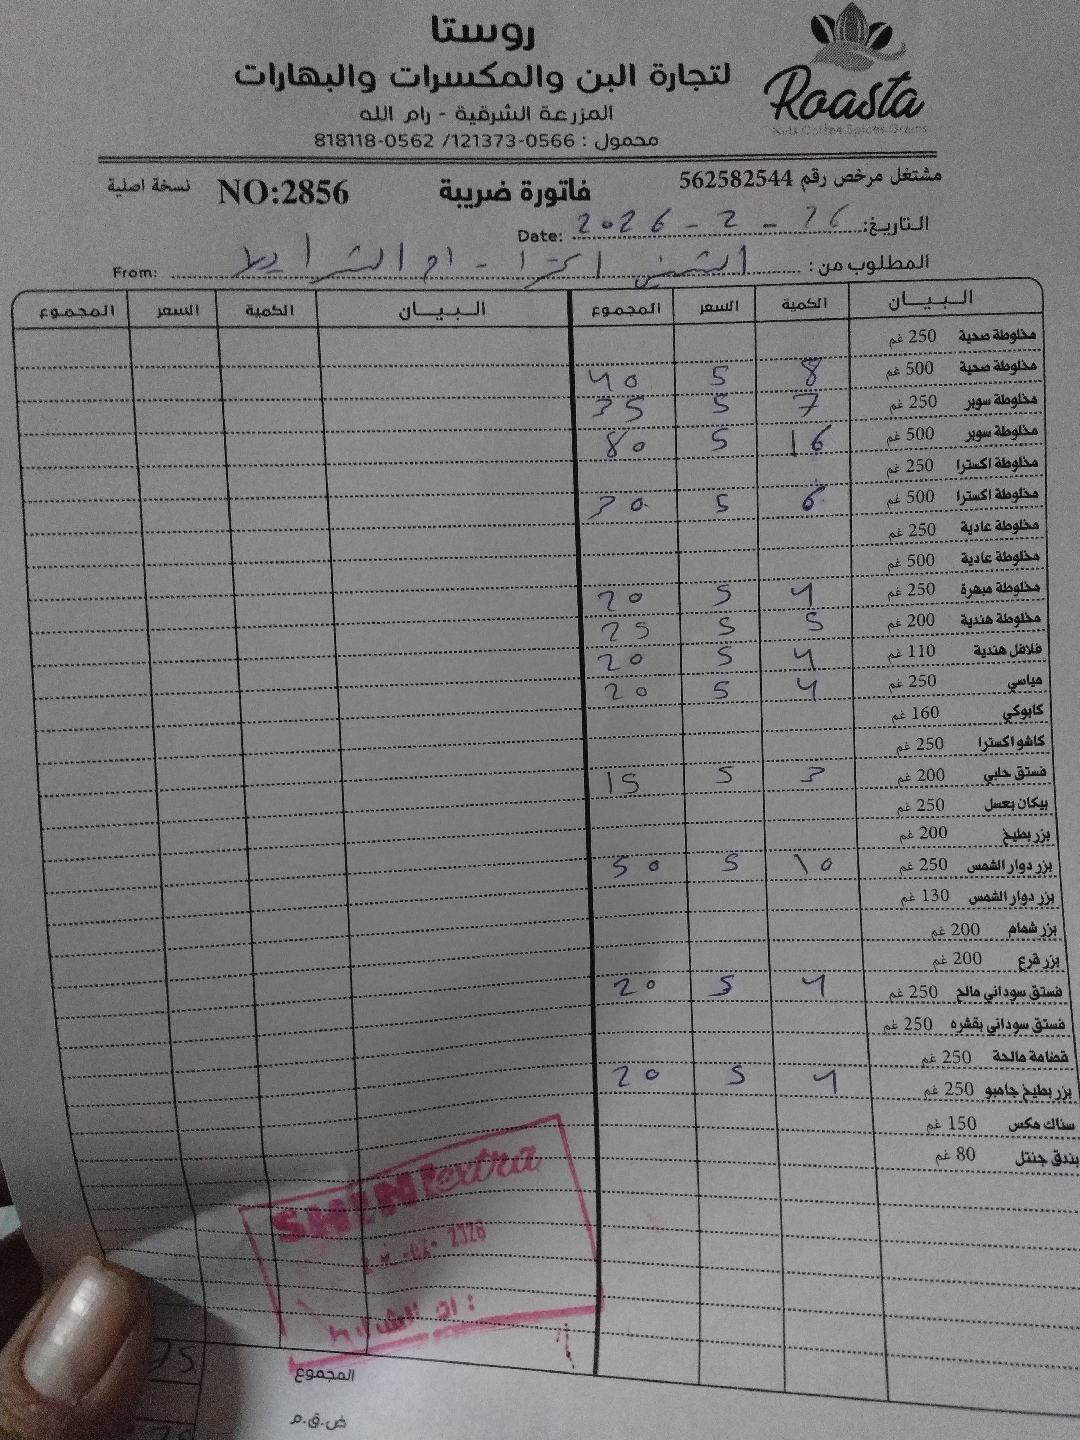 روستا
لتجارة البن والمكسرات والبهارات
المزرعة الشرقية - رام الله
محمول : 0566-121373/ 0562-818118
Roasta
Nuts Coffee Spices Grains
مشتغل مرخص رقم 562582544
فاتورة ضريبة
NO:2856
نسخة اصلية
التاريخ: 26 - 2 - 2026 Date:
المطلوب من: الشني اكسترا - ام الشرايط From:
البيان الكمية السعر المجموع البيان الكمية السعر المجموع
مخلوطة صحية 250 غم
مخلوطة صحية 500 غم 8 5 40
مخلوطة سوبر 250 غم 7 5 35
مخلوطة سوبر 500 غم 16 5 80
مخلوطة اكسترا 250 غم
مخلوطة اكسترا 500 غم 6 5 30
مخلوطة عادية 250 غم
مخلوطة عادية 500 غم
مخلوطة مبهرة 250 غم 4 5 20
مخلوطة هندية 200 غم 5 5 25
فلافل هندية 110 غم 4 5 20
مياسي 250 غم 4 5 20
كابوكي 160 غم
كاشو اكسترا 250 غم
فستق حلبي 200 غم 3 5 15
بيكان بعسل 250 غم
بزر بطيخ 200 غم
بزر دوار الشمس 250 غم 10 5 50
بزر دوار الشمس 130 غم
بزر شمام 200 غم
بزر قرع 200 غم
فستق سوداني مالح 250 غم 4 5 20
فستق سوداني بقشره 250 غم
قضامة مالحة 250 غم
بزر بطيخ جامبو 250 غم 4 5 20
سناك مكس 150 غم
بندق جنتل 80 غم
SHINI extra
2026
ام الشرايط
المجموع
ض.ق.م